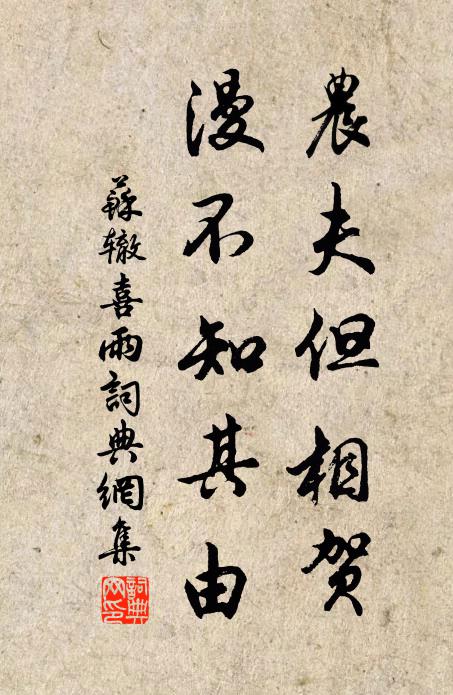 農夫但相贺
漫不知其由
蘇辙喜雨詞典網集
詞典